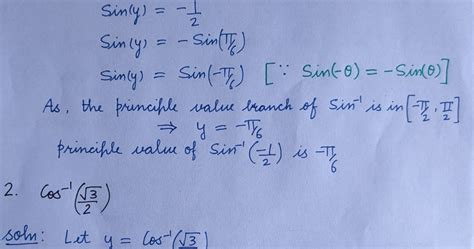 Sin(y) = -1/2
Sin(y) = - Sin(π/6)
Sin(y) = Sin(-π/6) [∵ Sin(-θ) = -Sin(θ)]
As, the principle value branch of Sin⁻¹ is in [-π/2, π/2]
⇒ y = -π/6
principle value of Sin⁻¹(-1/2) is -π/6
2. Cos⁻¹(√3/2)
soln: Let y = Cos⁻¹(√3)